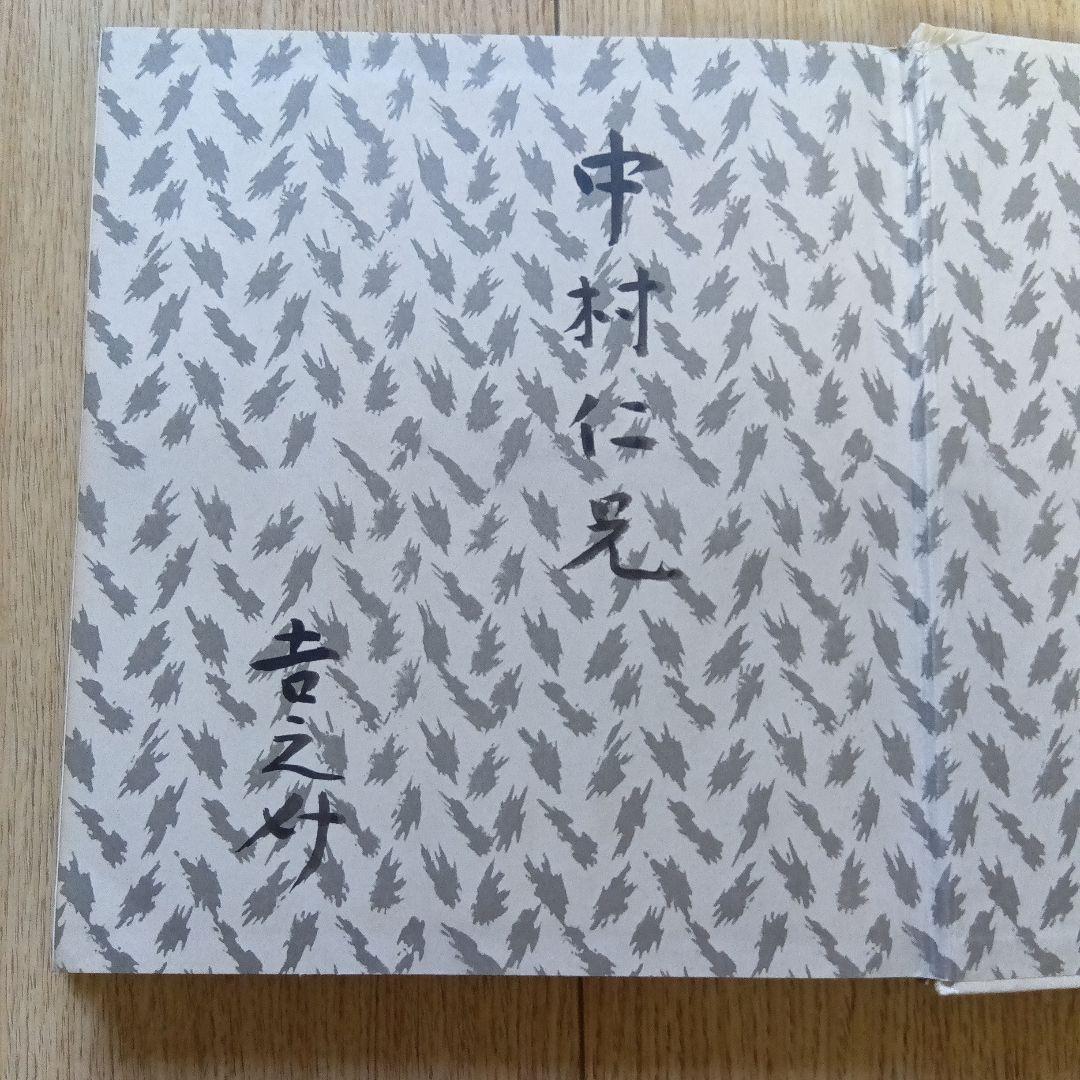 中村仁兄
吉之